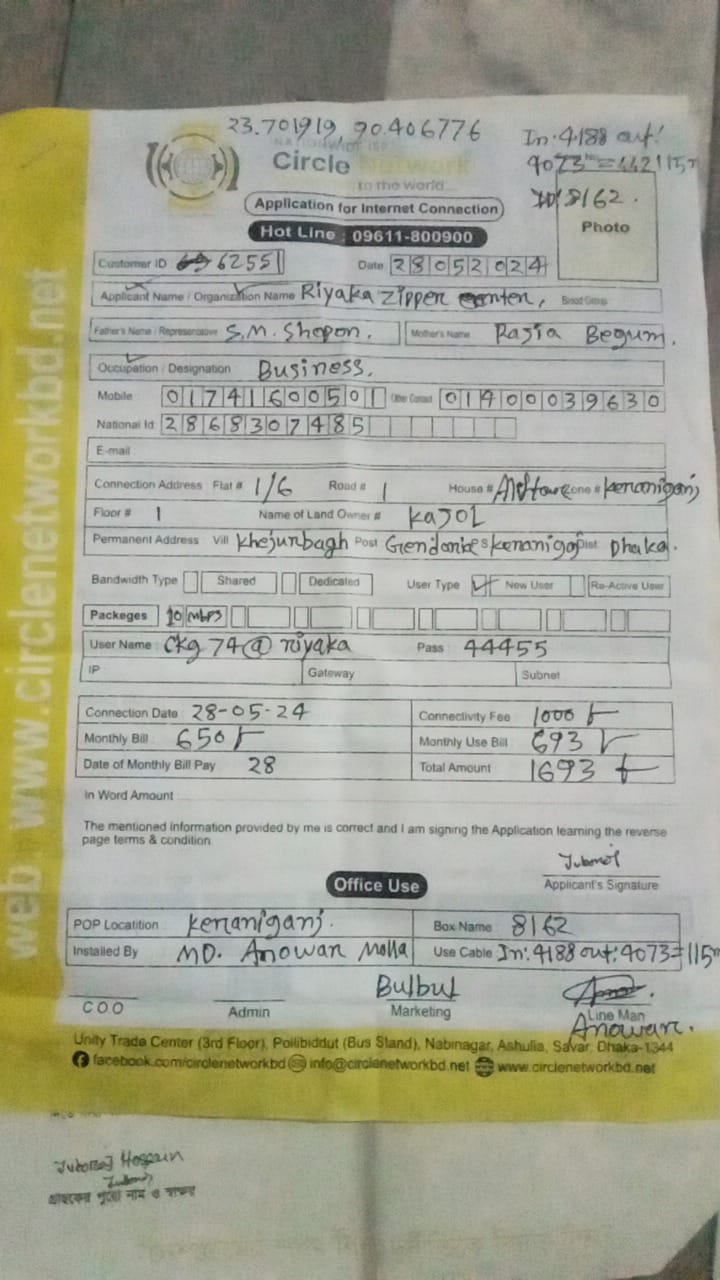 23.701919, 90.406776
In: 4188 out:
4073
ID 8162.
NATIONWIDE ISP
Circle Network
to the world
Application for Internet Connection
Hot Line : 09611-800900
Photo
Customer ID 62551
Date 28052024
Applicant Name / Organization Name Riyaka Zipper center, Blood Group
Father's Name / Representative S.M. Shopon. Mother's Name Rasia Begum.
Occupation / Designation Business.
Mobile 01741600501 Other Contact 01400039630
National Id 2868307485
E-mail
Connection Address Flat # 1/6 Road # 1 House # Zone # Keraniganj
Floor # 1 Name of Land Owner # Kajol
Permanent Address Vill Khejurbagh Post P S Keraniganj Dist Dhaka.
Bandwidth Type Shared Dedicated User Type New User Re-Active User
Packeges 10 mbps
User Name : Ckg 74@riyaka Pass : 44455
IP Gateway Subnet
Connection Date 28-05-24 Connectivity Fee 1000
Monthly Bill 650 Monthly Use Bill 693
Date of Monthly Bill Pay 28 Total Amount 1693
In Word Amount
The mentioned information provided by me is correct and I am signing the Application learning the reverse
page terms & condition
Applicant's Signature
Office Use
POP Locatition Keraniganj. Box Name 8162
Installed By MD. Anowar Molla Use Cable In: 4188 out: 4073=115m
Bulbul
COO Admin Marketing Line Man
Anowar.
Unity Trade Center (3rd Floor), Pollibiddut (Bus Stand), Nabinagar, Ashulia, Savar, Dhaka-1344
facebook.com/circlenetworkbd info@circlenetworkbd.net www.circlenetworkbd.net
web : www.circlenetworkbd.net
Juboraj Hossain
গ্রাহকের পুরো নাম ও স্বাক্ষর